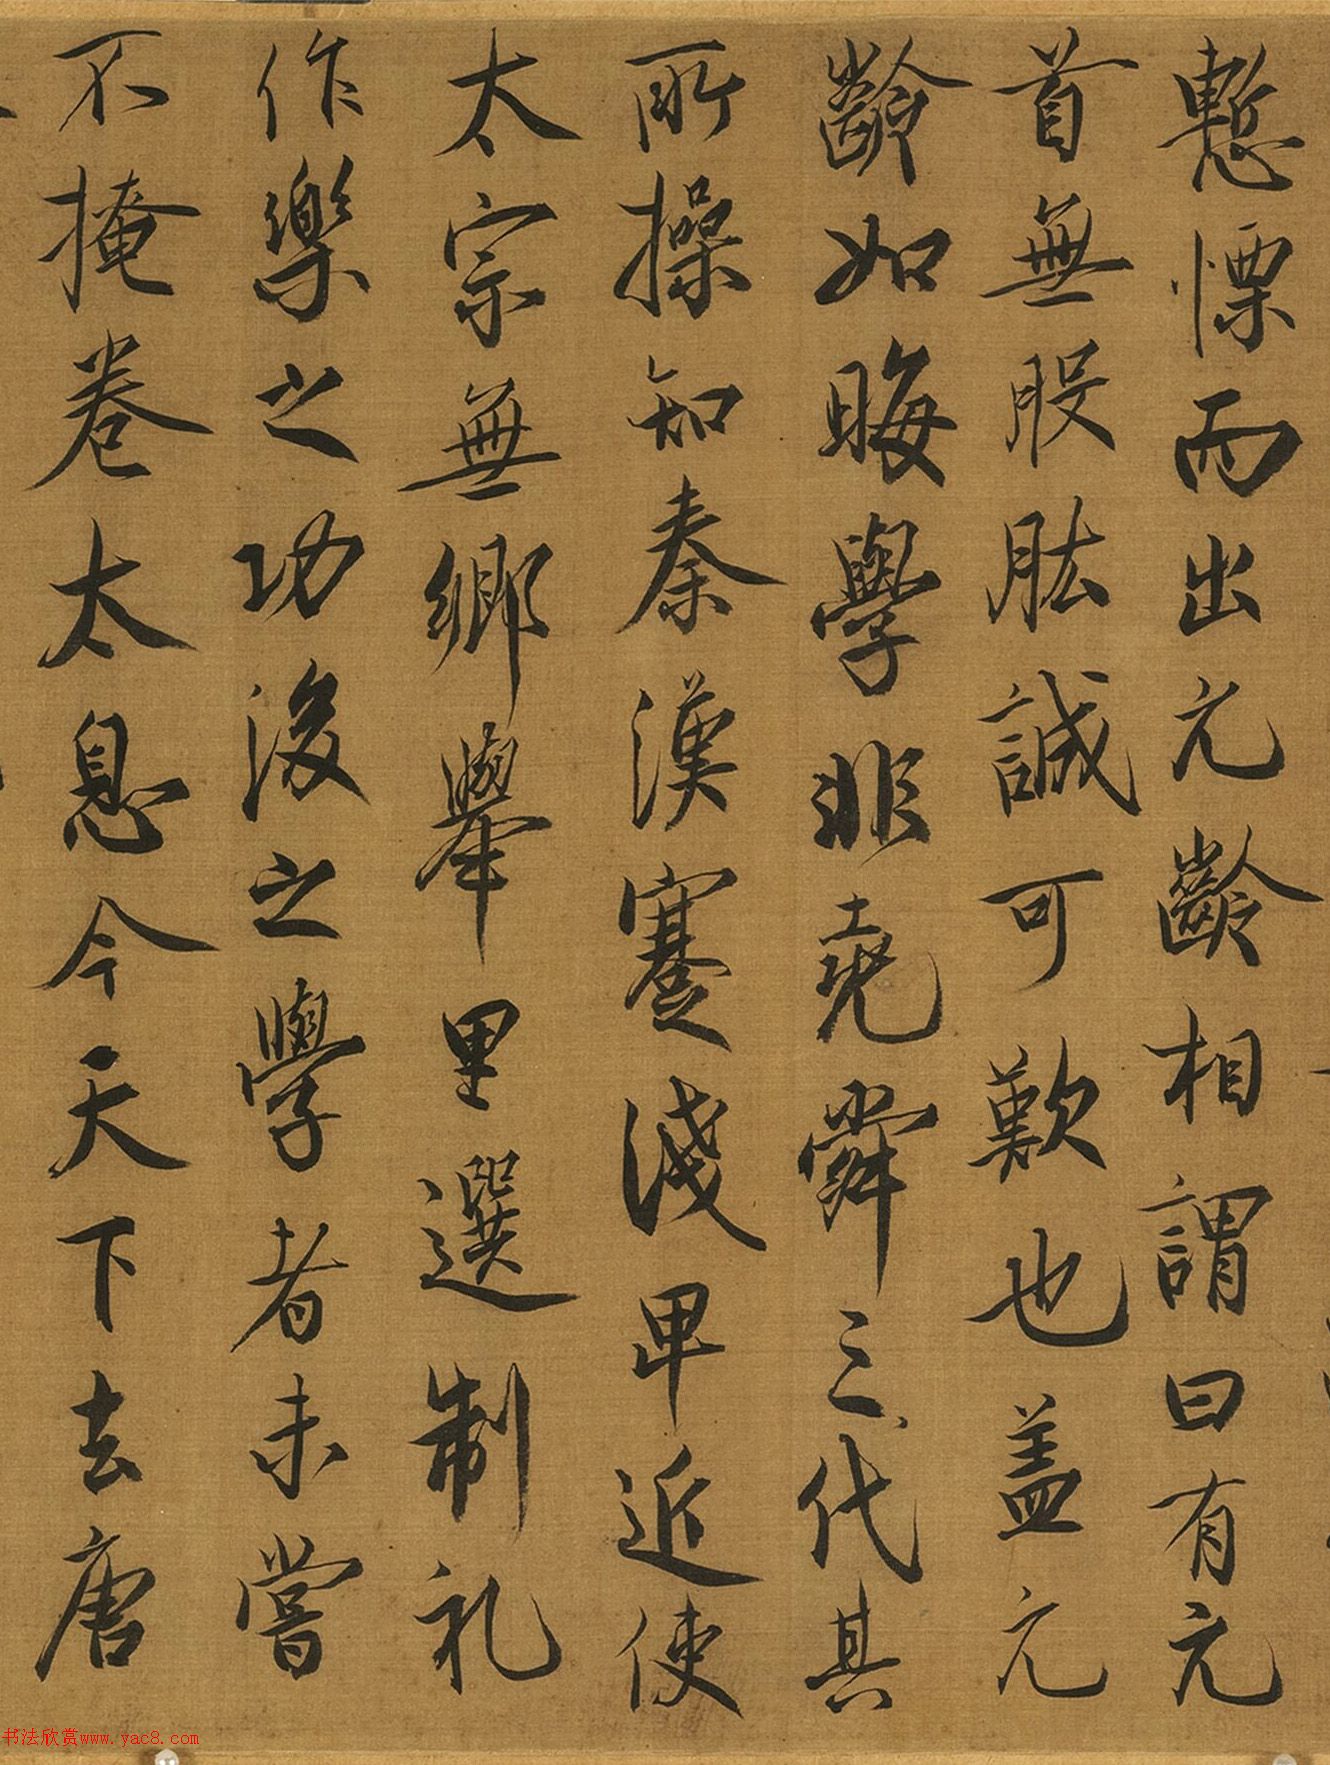 慙慄而出元齡相謂曰有元
首無股肱誠可歎也盖元
齡如晦學非堯舜三代其
所操知秦漢蹇淺卑近使
太宗無鄉舉里選制礼
作樂之功後之學者未嘗
不掩卷太息今天下去唐
书法欣赏www.yac8.com